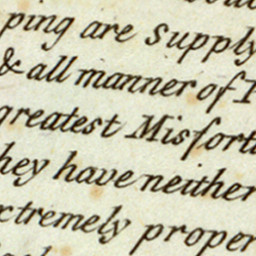 ping are supply
& all manner of
greatest Misfort
hey have neither
xtremely proper